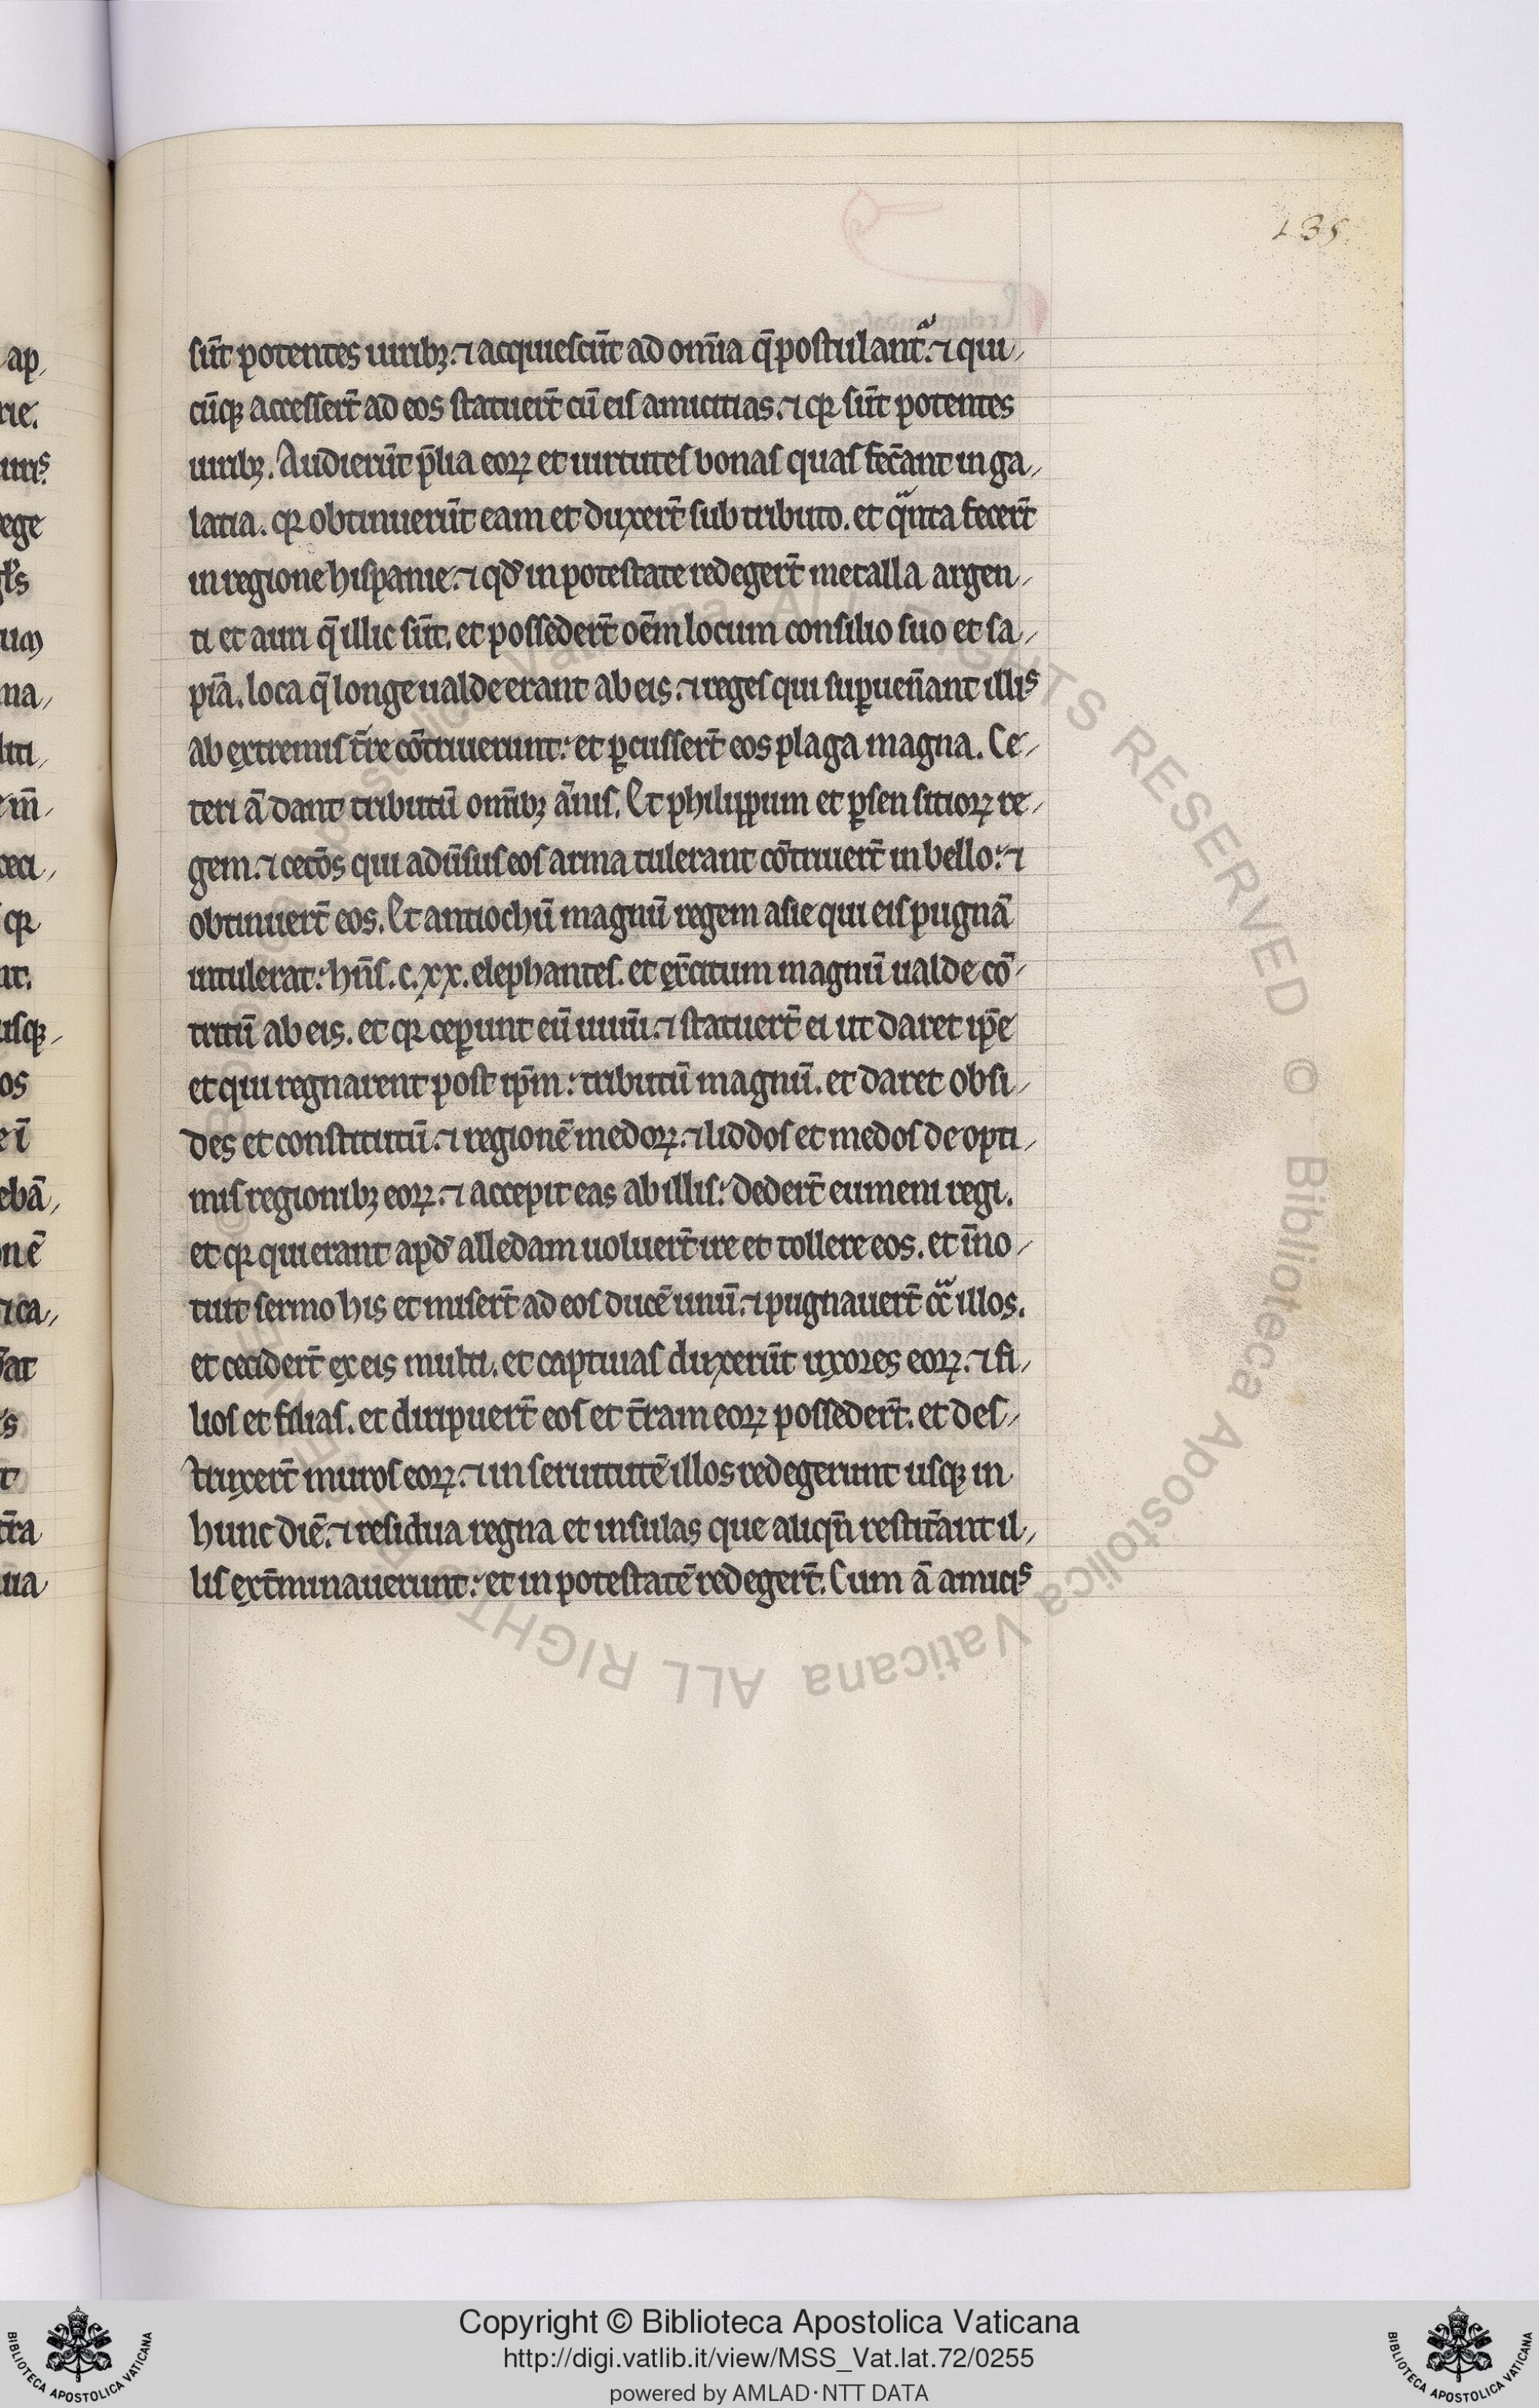 135
sūt potentes uiribꝫ. ⁊ acquiescūt ad om̄ia q̄ postulant᷑. ⁊ qui-
cūqꝫ accesser̄t ad eos statuer̄t cū eis amicitias. ⁊ qꝛ sūt potentes
uiribꝫ. Audierūt p̄lia eoꝝ et uirtutes bonas quas fec̄ant in ga-
latia. qꝛ obtinuerūt eam et duxer̄t sub tributo. et qͣnta fecer̄t
in regione hispanie. ⁊ qd̄ in potestate redeger̄t metalla argen-
ti et auri q̄ illic sūt. et posseder̄t oēm locum consilio suo et sa-
piā. loca q̄ longe ualde erant ab eis. ⁊ reges qui suꝑuen̄ant illis
ab extremis t̄re cōtriuerunt. et ꝑcusser̄t eos plaga magna. Ce-
teri ā dant tributū om̄ibꝫ ānis. Et philippum et ꝑsen sitioꝝ re-
gem. ⁊ cet̄os qui adūsus eos arma tulerant cōtriuer̄t in bello. ⁊
obtinuer̄t eos. Et antiochū magnū regem asie qui eis pugnā
intulerat. hn̄s. c. xx. elephantes. et ex̄citum magnū ualde cō-
tritū ab eis. et qꝛ ceꝑunt eū uiuū. ⁊ statuer̄t ei ut daret ip̄e
et qui regnarent post ip̄m. tributū magnū. et daret obsi-
des et constitutū. ⁊ regionē medoꝝ. ⁊ liddos et medos de opti-
mis regionibꝫ eoꝝ. ⁊ accepit eas ab illis. deder̄t eumeni regi.
et qꝛ qui erant apd̄ alledam uoluer̄t ire et tollere eos. et īno-
tuit sermo his et miser̄t ad eos ducē unū. ⁊ pugnauer̄t cͣ illos.
et cecider̄t ex eis multi. et captiuas duxerūt uxores eoꝝ. ⁊ fi-
lios et filias. et diripuer̄t eos et t̄ram eoꝝ posseder̄t. et des-
truxer̄t muros eoꝝ. ⁊ in seruitutē illos redegerunt usqꝫ in
hunc diē. ⁊ residua regna et insulas que aliqn̄ restit̄ant il-
lis ext̄minauerunt. et in potestatē redeger̄t. Cum ā amicis
ap-
rie.
uris
ege
um
na-
liti-
ceci-
qꝛ
usqꝫ-
os
ebā-
nē
⁊ ca-
t̄ra
© Biblioteca Apostolica Vaticana ALL RIGHTS RESERVED
Copyright © Biblioteca Apostolica Vaticana
http://digi.vatlib.it/view/MSS_Vat.lat.72/0255
powered by AMLAD·NTT DATA
BIBLIOTECA APOSTOLICA VATICANA
BIBLIOTECA APOSTOLICA VATICANA